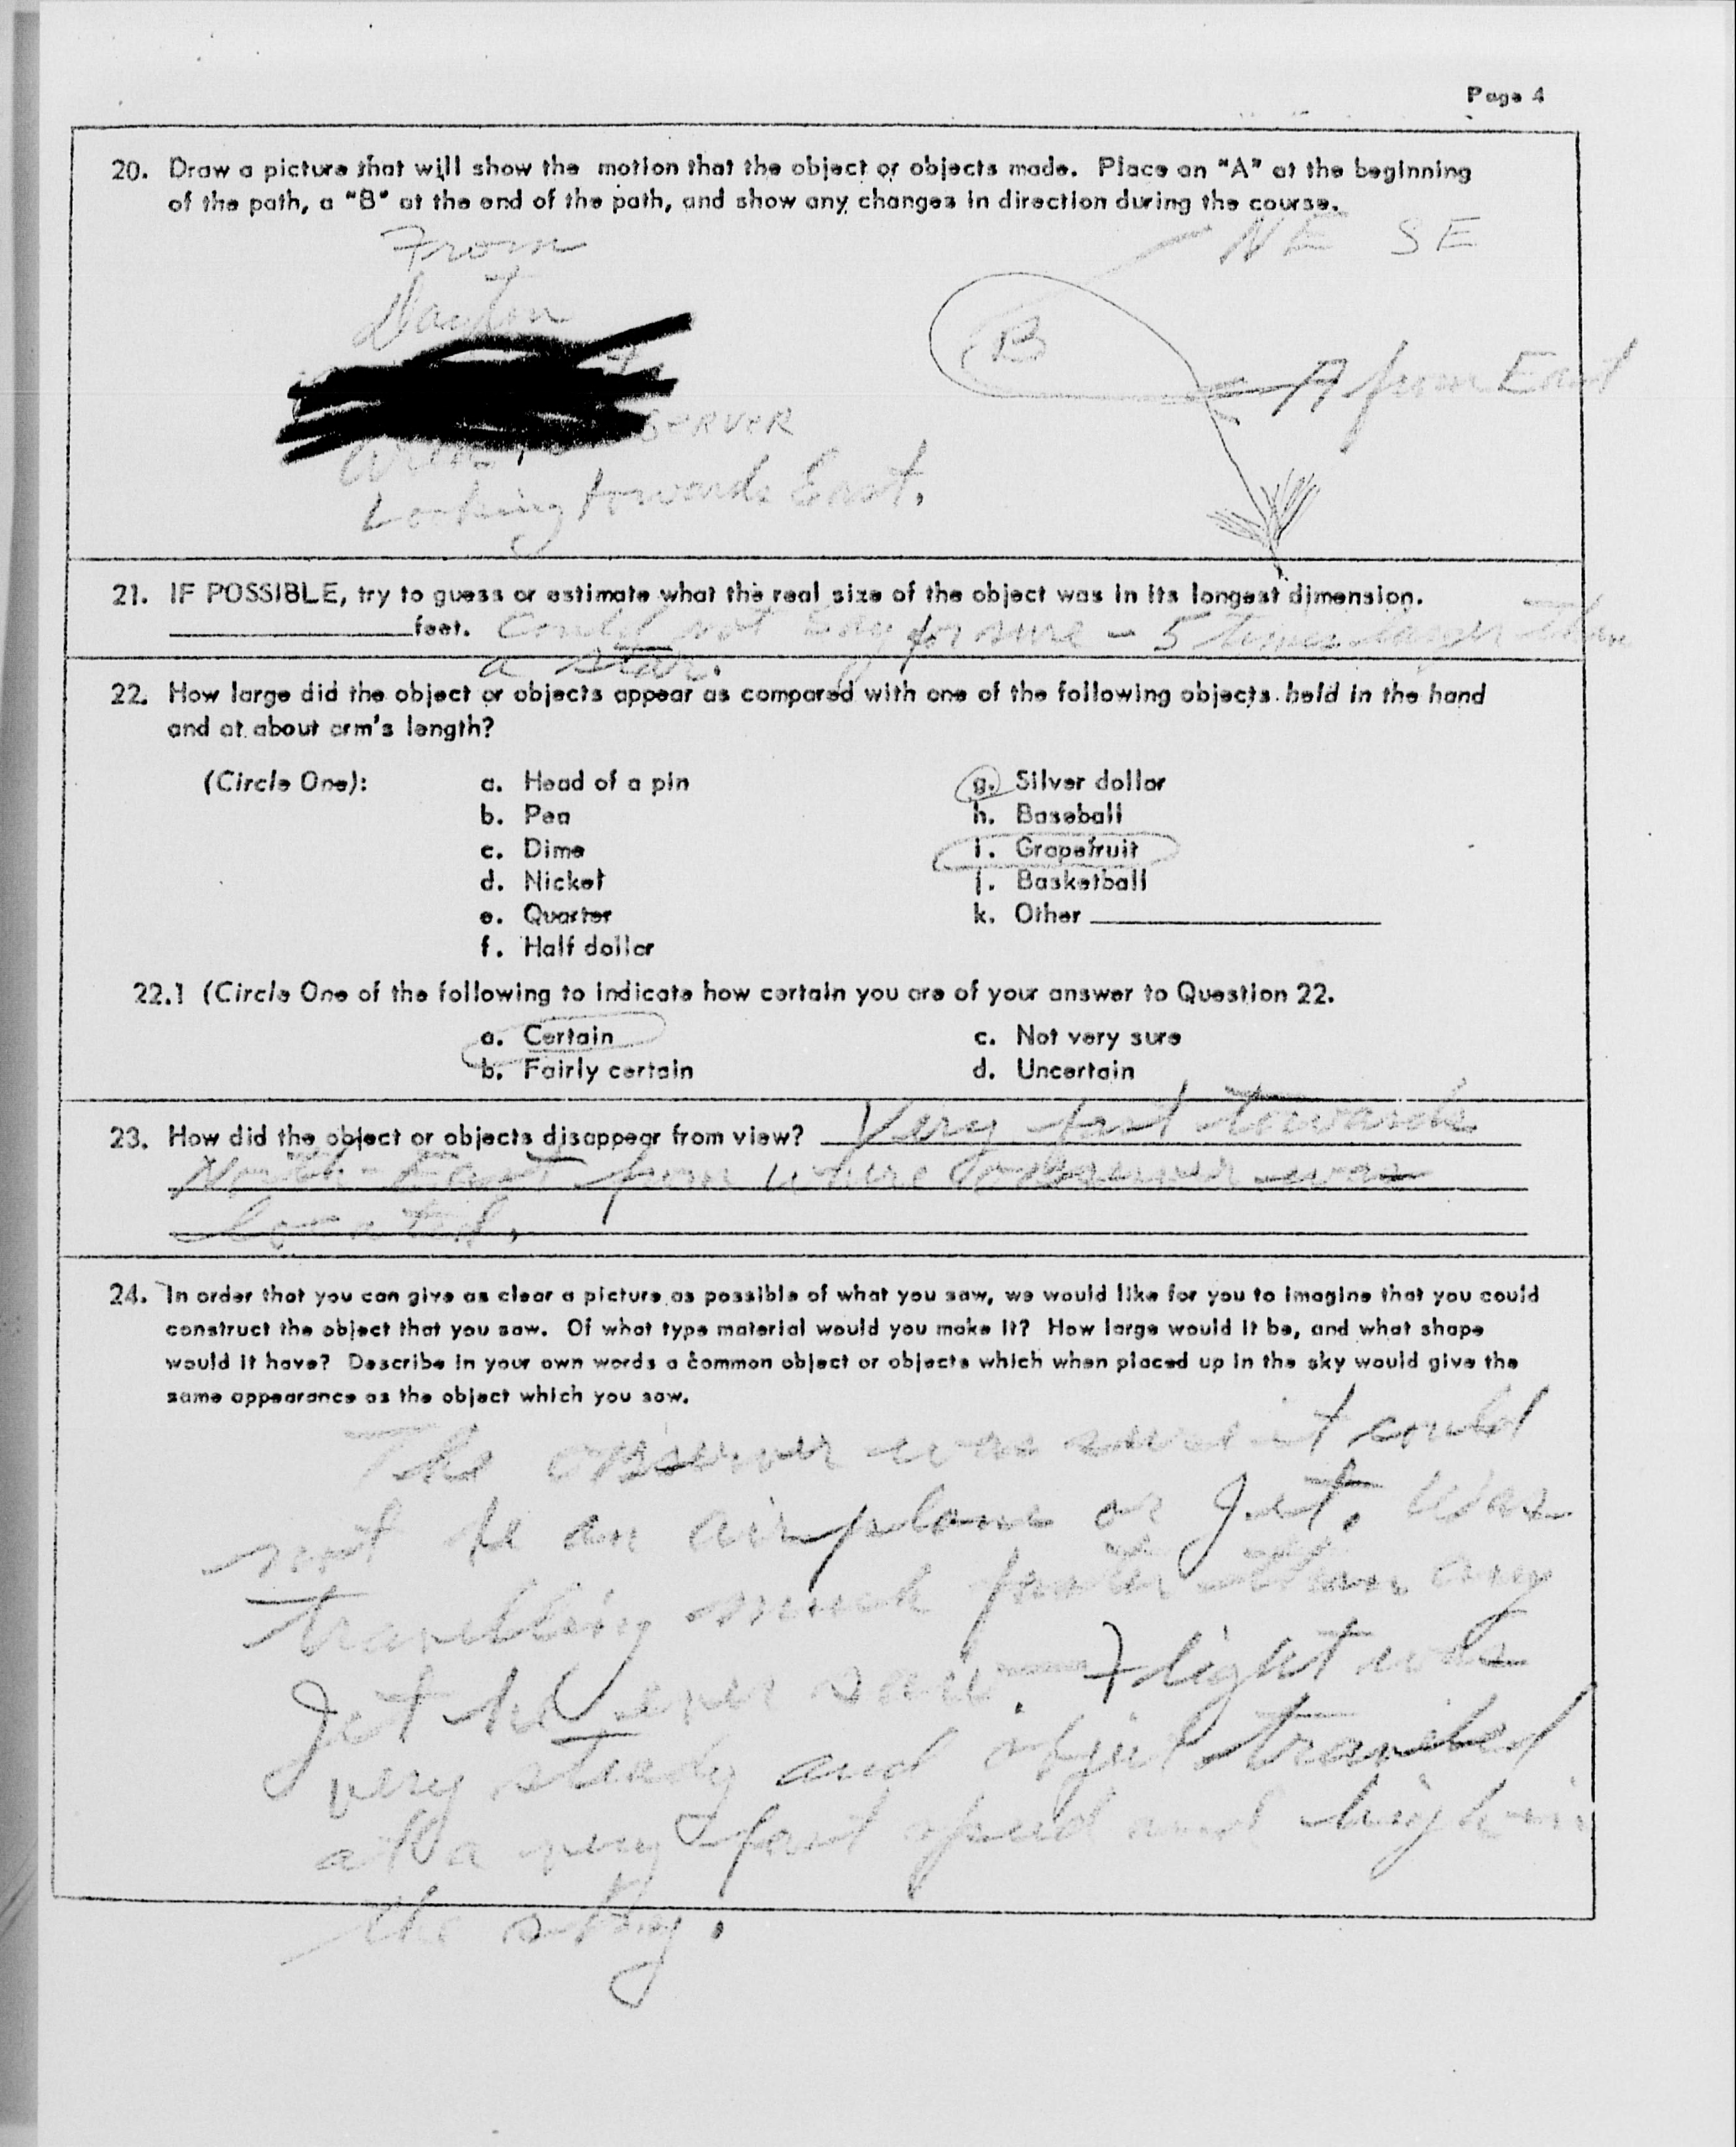 Page 4
20. Draw a picture that will show the motion that the object or objects made. Place an "A" at the beginning
of the path, a "B" at the end of the path, and show any changes in direction during the course.
From
Dayton
NE SE
B
A from East
SERVER
Looking towards East.
21. IF POSSIBLE, try to guess or estimate what the real size of the object was in its longest dimension.
feet. Could not say for sure - 5 times larger than
a star.
22. How large did the object or objects appear as compared with one of the following objects held in the hand
and at about arm's length?
(Circle One): a. Head of a pin g. Silver dollar
b. Pea h. Baseball
c. Dime i. Grapefruit
d. Nickel j. Basketball
e. Quarter k. Other
f. Half dollar
22.1 (Circle One of the following to indicate how certain you are of your answer to Question 22.
a. Certain c. Not very sure
b. Fairly certain d. Uncertain
23. How did the object or objects disappear from view? Very fast towards
North-East from where observer was
located.
24. In order that you can give as clear a picture as possible of what you saw, we would like for you to imagine that you could
construct the object that you saw. Of what type material would you make it? How large would it be, and what shape
would it have? Describe in your own words a common object or objects which when placed up in the sky would give the
same appearance as the object which you saw.
The observer was sure it could
not be an airplane or Jet. Was
travelling much faster than any
Jet he ever saw. Flight was
very steady and object traveled
at a very fast speed and high in
the sky.